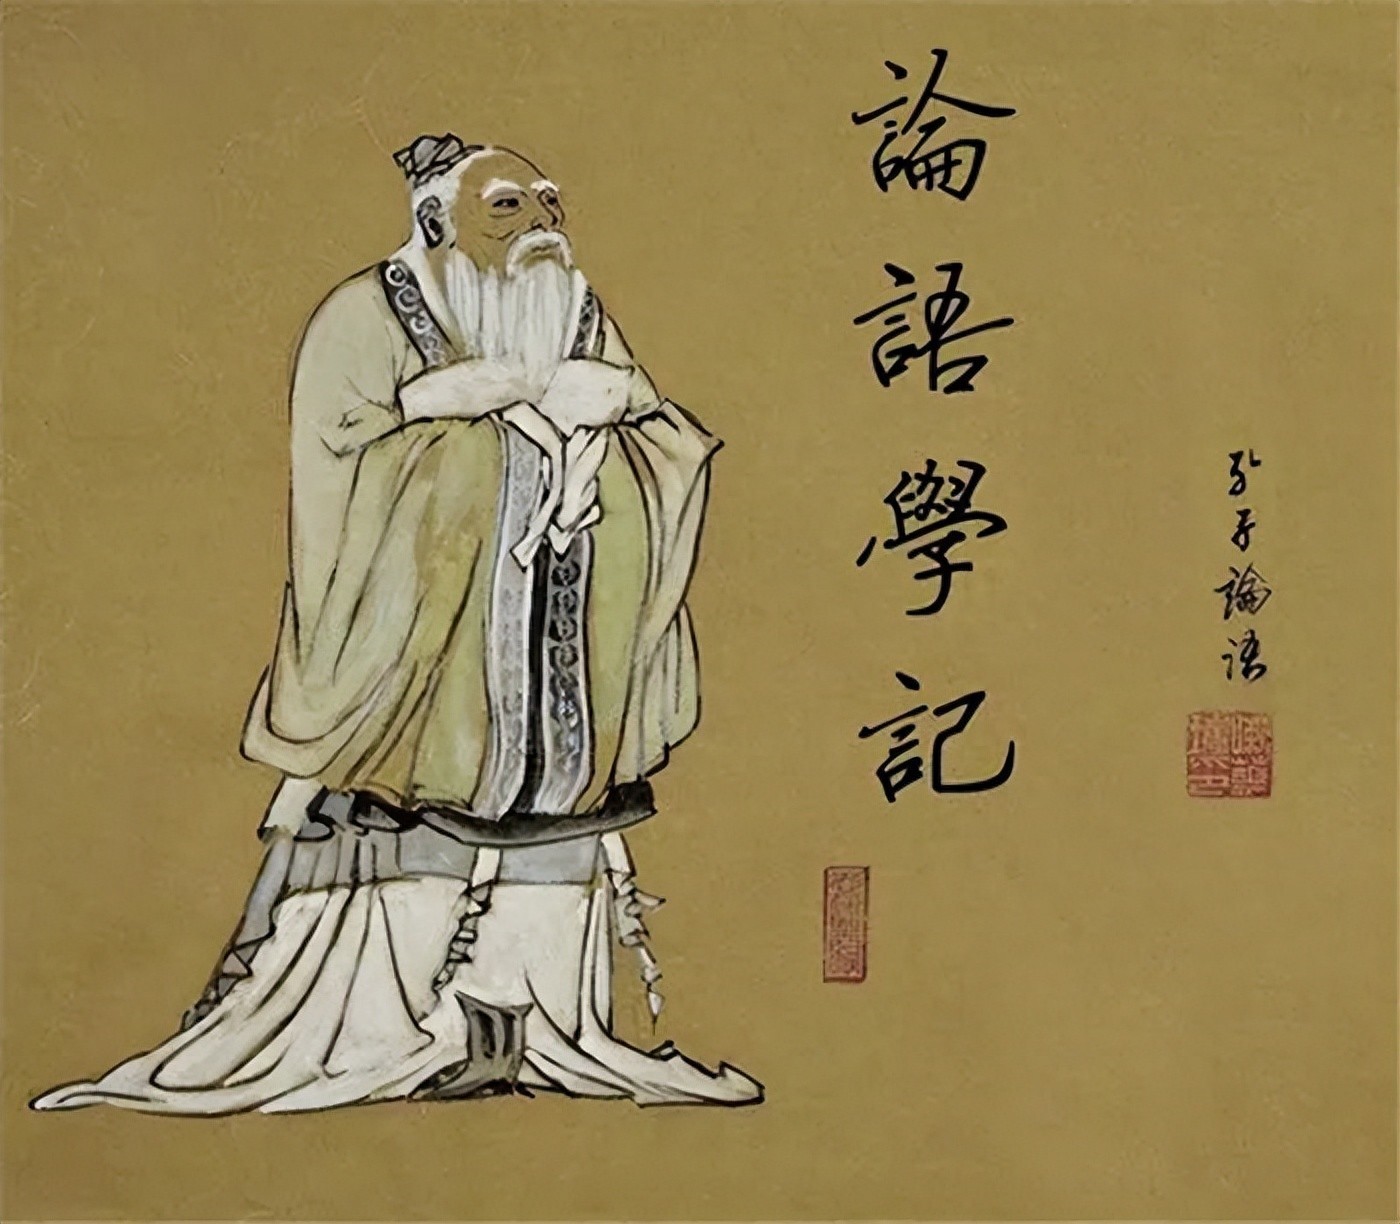 論語學記
孔子論語